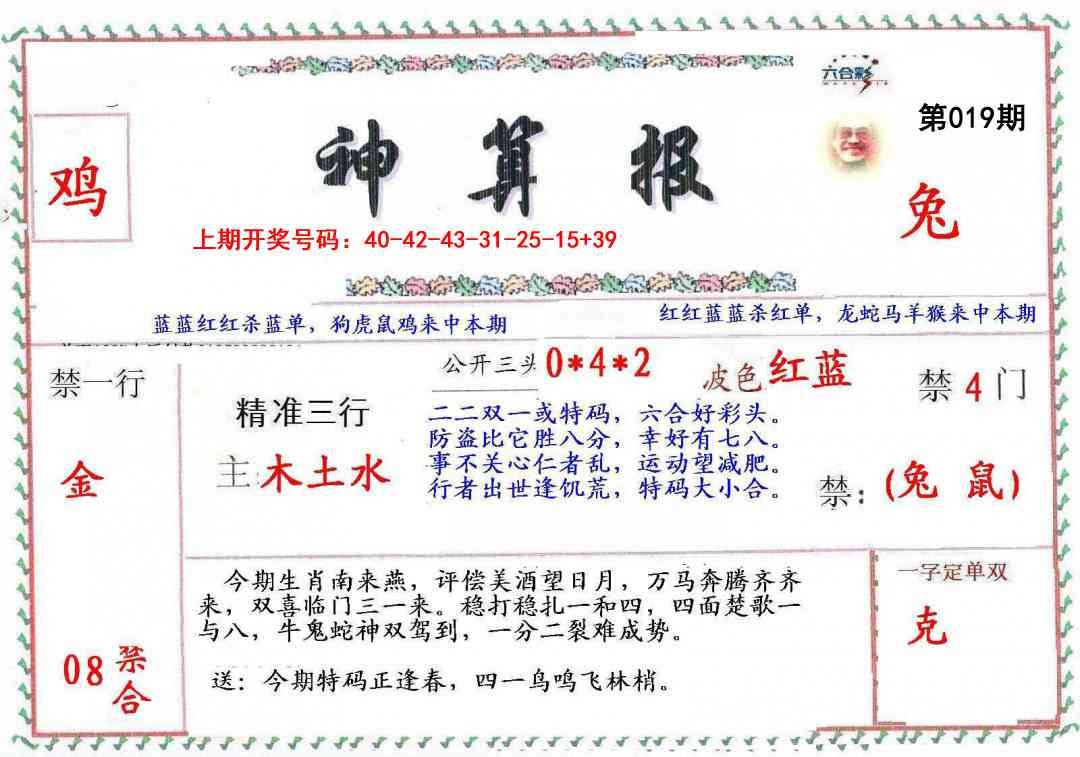 六合彩
第019期
鸡
神算报
兔
上期开奖号码：40-42-43-31-25-15+39
蓝蓝红红杀蓝单，狗虎鼠鸡来中本期
红红蓝蓝杀红单，龙蛇马羊猴来中本期
禁一行
公开三头0*4*2
波色红蓝
禁4门
精准三行
二二双一或特码，六合好彩头。
防盗比它胜八分，幸好有七八。
金
主:木土水
事不关心仁者乱，运动望减肥。
行者出世逢饥荒，特码大小合。
禁：(兔 鼠)
今期生肖南来燕，评偿美酒望日月，万马奔腾齐齐
来，双喜临门三一来。稳打稳扎一和四，四面楚歌一
与八，牛鬼蛇神双驾到，一分二裂难成势。
一字定单双
克
08禁合
送：今期特码正逢春，四一鸟鸣飞林梢。